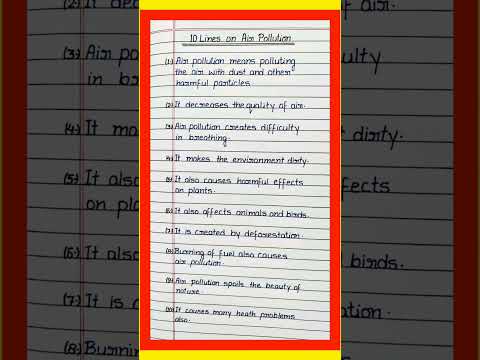 10 Lines on Air Pollution
(1) Air pollution means polluting
the air with dust and other
harmful particles.
(2) It decreases the quality of air.
(3) Air pollution creates difficulty
in breathing.
(4) It makes the environment dirty.
(5) It also causes harmful effects
on plants.
(6) It also affects animals and birds.
(7) It is created by deforestation.
(8) Burning of fuel also causes
air pollution.
(9) Air pollution spoils the beauty of
nature.
(10) It causes many heath problems
also.
(2) It de
of air.
(3) Air po
culty
in brea
(4) It ma
dirty.
(5) It also
effects
on pla
(6) It also
birds.
(7) It is c
tation.
(8) Burnin